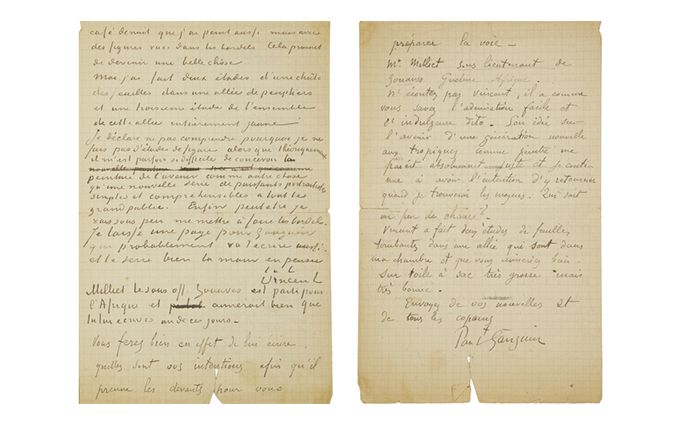 café de nuit que j'ai peint aussi mais avec
des figures vues dans les bordels. Cela promet
de devenir une belle chose
Moi j'ai fait deux études d'une chûte
des feuilles dans une allée de peupliers
et une troisieme étude de l'ensemble
de cette allée entièrement jaune
Je déclare ne pas comprendre pourquoi je ne
fais pas d'études de figure alors que théoriquement
il m'est parfois si difficile de concevoir la
peinture de l'avenir comme autre chose
qu'une nouvelle serie de puissants portraitistes
simples et comprehensibles à tout le
grand public. Enfin peutetre je
vais sous peu me mettre à faire les bordels.
Je laisse une page pour Gauguin
qui probablement va t'ecrire aussi
et te serre bien la main en pensée
t. à t.
Vincent
Milliet le sous off. Zouaves est parti pour
l'Afrique et aimerait bien que
tu lui ecrives un de ces jours.
Vous ferez bien en effet de lui écrire
quelles sont vos intentions afin qu'il
prenne les devants pour vous
préparer la voie —
Mr Milliet sous lieutenant de
zouaves Guelma Afrique.
N'écoutez pas Vincent, il a comme
vous savez l'admiration facile et
l'indulgence dito. Son idée sur
l'avenir d'une génération nouvelle
aux tropiques comme peintre me
parait absolument juste et je continue
à avoir l'intention d'y retourner
quand je trouverai les moyens. Qui sait
un peu de chance?
Vincent a fait deux études de feuilles
tombantes dans une allée qui sont dans
ma chambre et que vous aimeriez bien
sur toile à sac très grosse mais
très bonne.
Envoyez de vos nouvelles et
de tous les copains
Paul Gauguin